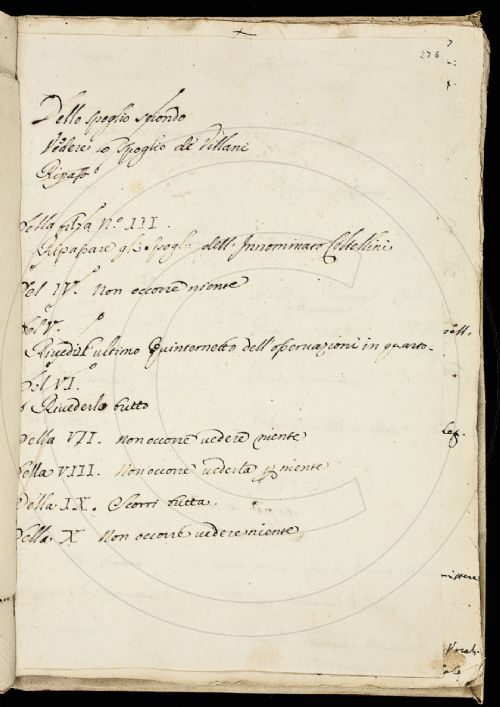 276
Dello spoglio secondo
Vedere lo Spoglio de Villani
Ripass.º
Della filza N.º III.
Ripassare gli spogli dell'Innominato Coltellini
Del IV.º Non occorre niente
Del V.º
Rivedi l'ultimo Quinternetto dell'osservazioni in quarto.
Del VI.º
Rivederlo tutto
Della VII. Non occorre vedere niente
Della VIII. Non occorre vederla niente
Della IX. Scorri tutta.
Della X Non occorre vedere niente
Vocab.